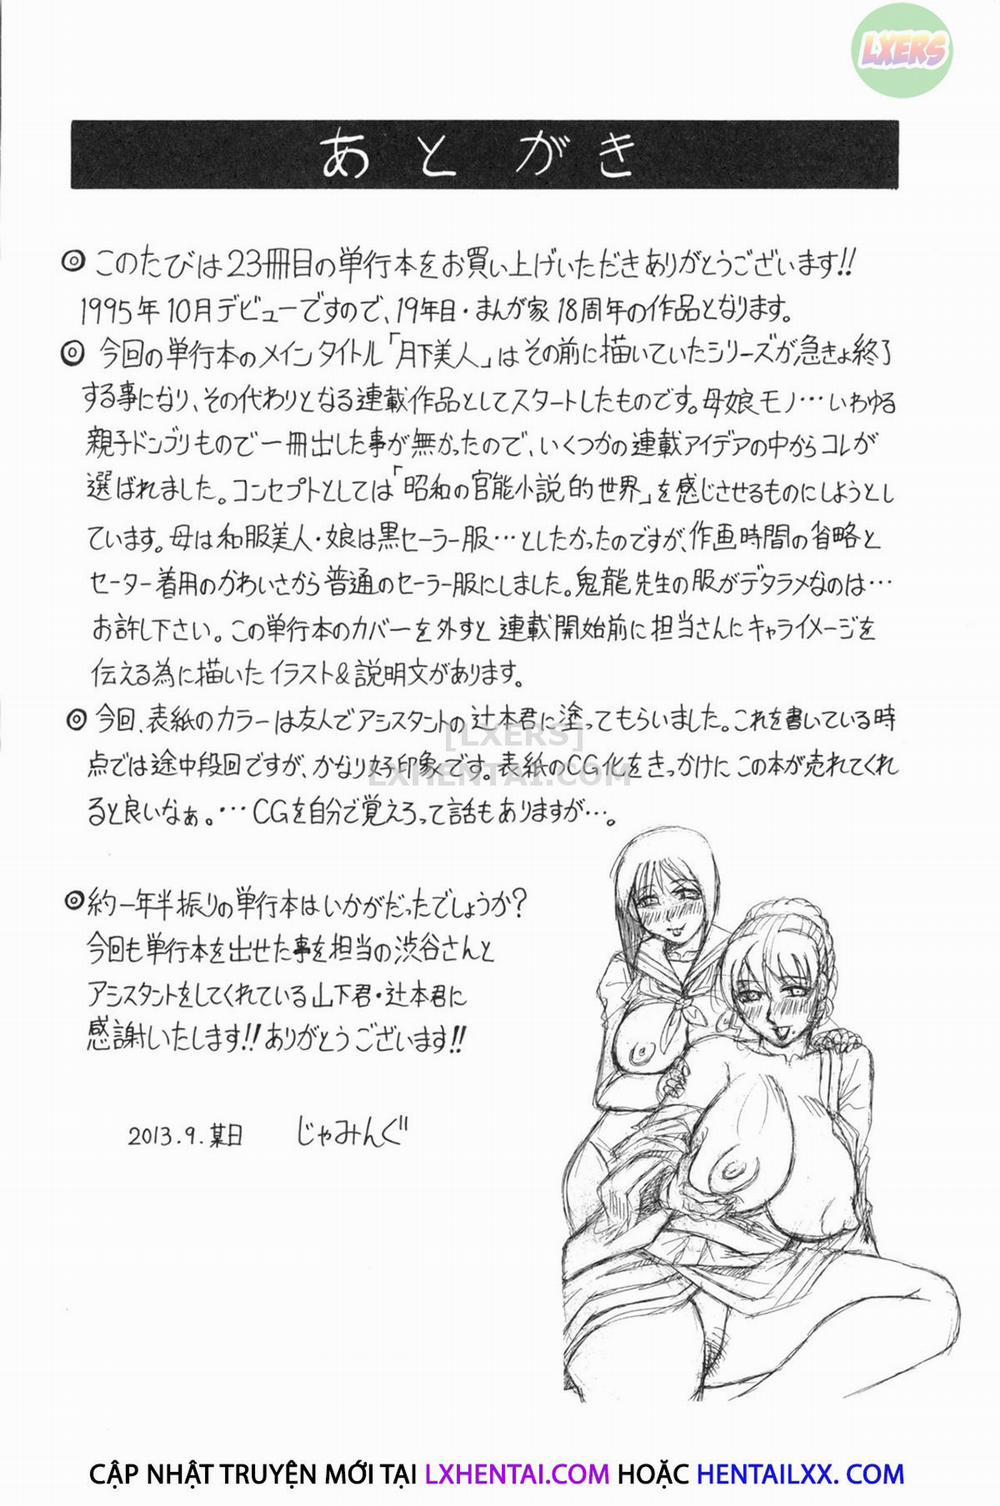 LXERS
あとがき
◎このたびは23冊目の単行本をお買い上げいただきありがとうございます!!
1995年10月デビューですので、19年目・まんが家18周年の作品となります。
◎今回の単行本のメインタイトル「月下美人」はその前に描いていたシリーズが急きょ終了
する事になり、その代わりとなる連載作品としてスタートしたものです。母娘モノ…いわゆる
親子ドンブリもので一冊出した事が無かったので、いくつかの連載アイデアの中からコレが
選ばれました。コンセプトとしては「昭和の官能小説的世界」を感じさせるものにしようとし
ています。母は和服美人・娘は黒セーラー服…としたかったのですが、作画時間の省略と
セーター着用のかわいさから普通のセーラー服にしました。鬼龍先生の服がデタラメなのは…
お許し下さい。この単行本のカバーを外すと連載開始前に担当さんにキャライメージを
伝える為に描いたイラスト&説明文があります。
◎今回、表紙のカラーは友人でアシスタントの辻本君に塗ってもらいました。これを書いている時
[LXERS]
点では途中段回ですが、かなり好印象です。表紙のCG化をきっかけにこの本が売れてくれ
LXHENTAI.COM
ると良いなぁ。…CGを自分で覚えろって話もありますが…。
◎約一年半振りの単行本はいかがだったでしょうか?
今回も単行本を出せた事を担当の渋谷さんと
アシスタントをしてくれている山下君・辻本君に
感謝いたします!!ありがとうございます!!
2013.9.某日 じゃみんぐ
CẬP NHẬT TRUYỆN MỚI TẠI LXHENTAI.COM HOẶC HENTAILXX. COM